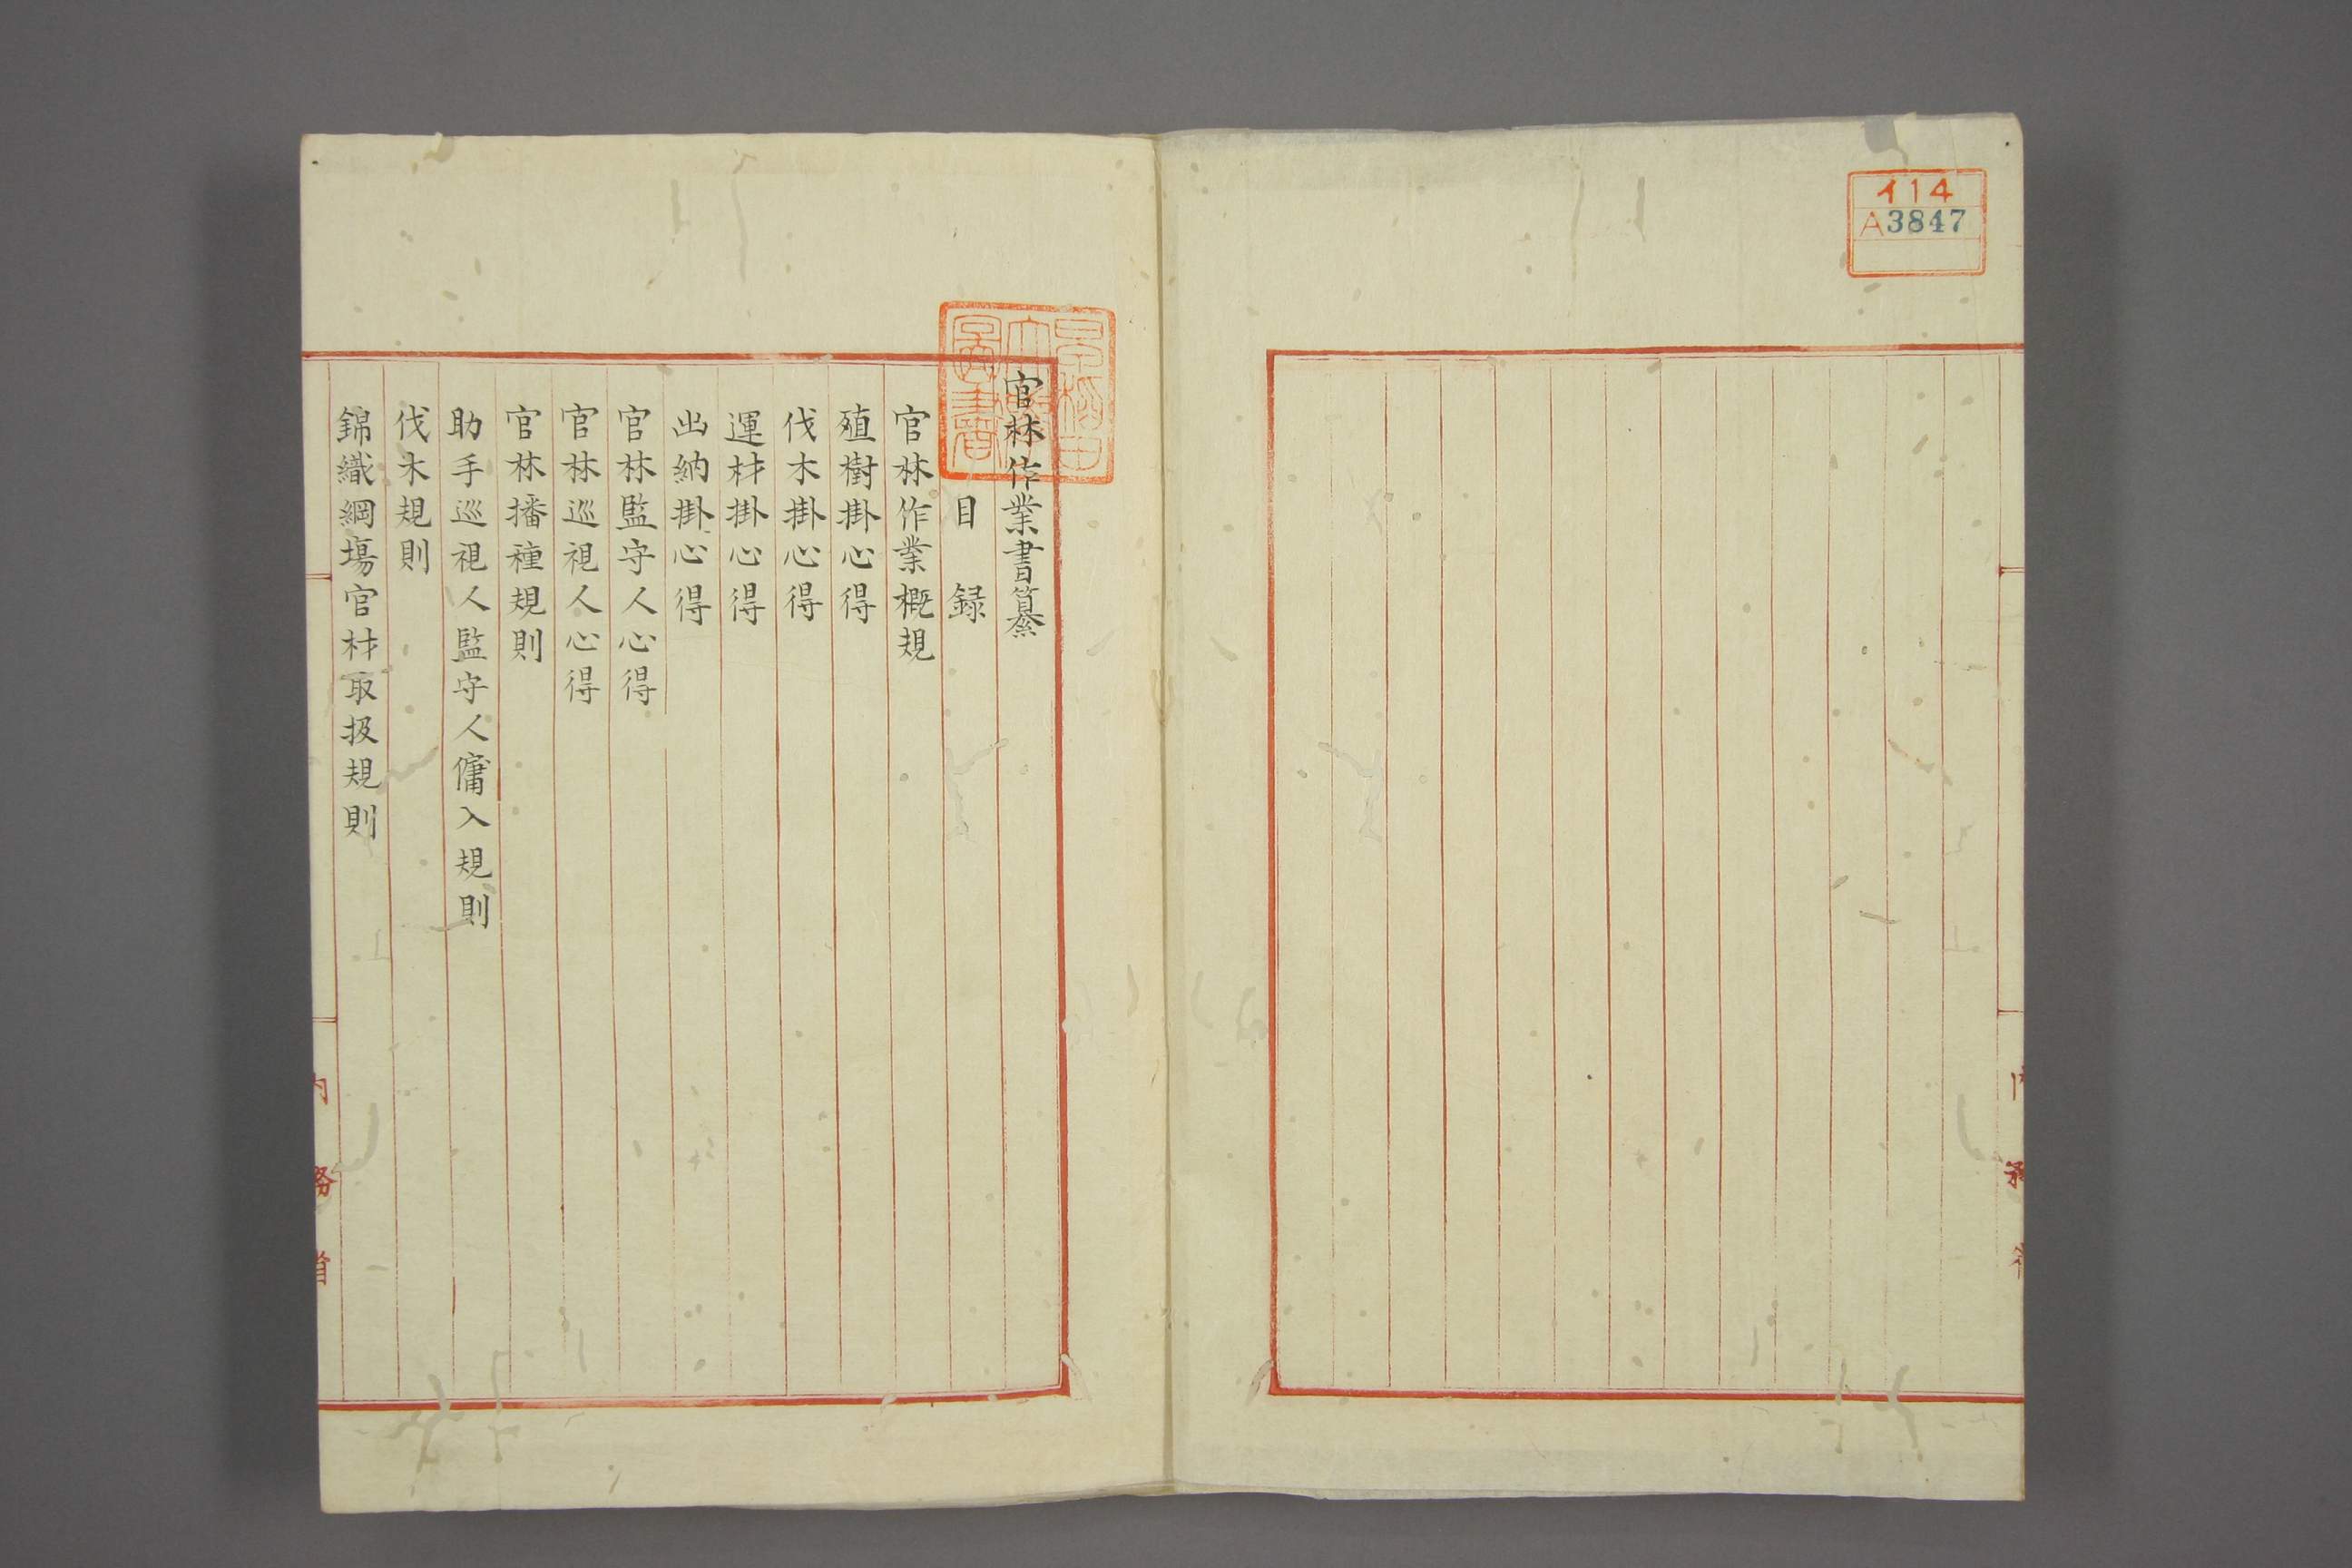 イ14
A3847
官林作業書纂
目録
官林作業概規
殖樹掛心得
伐木掛心得
運材掛心得
出納掛心得
官林監守人心得
官林巡視人心得
官林播種規則
助手巡視人監守人傭入規則
伐木規則
錦織綱場官材取扱規則
内務省
早稲田大学図書